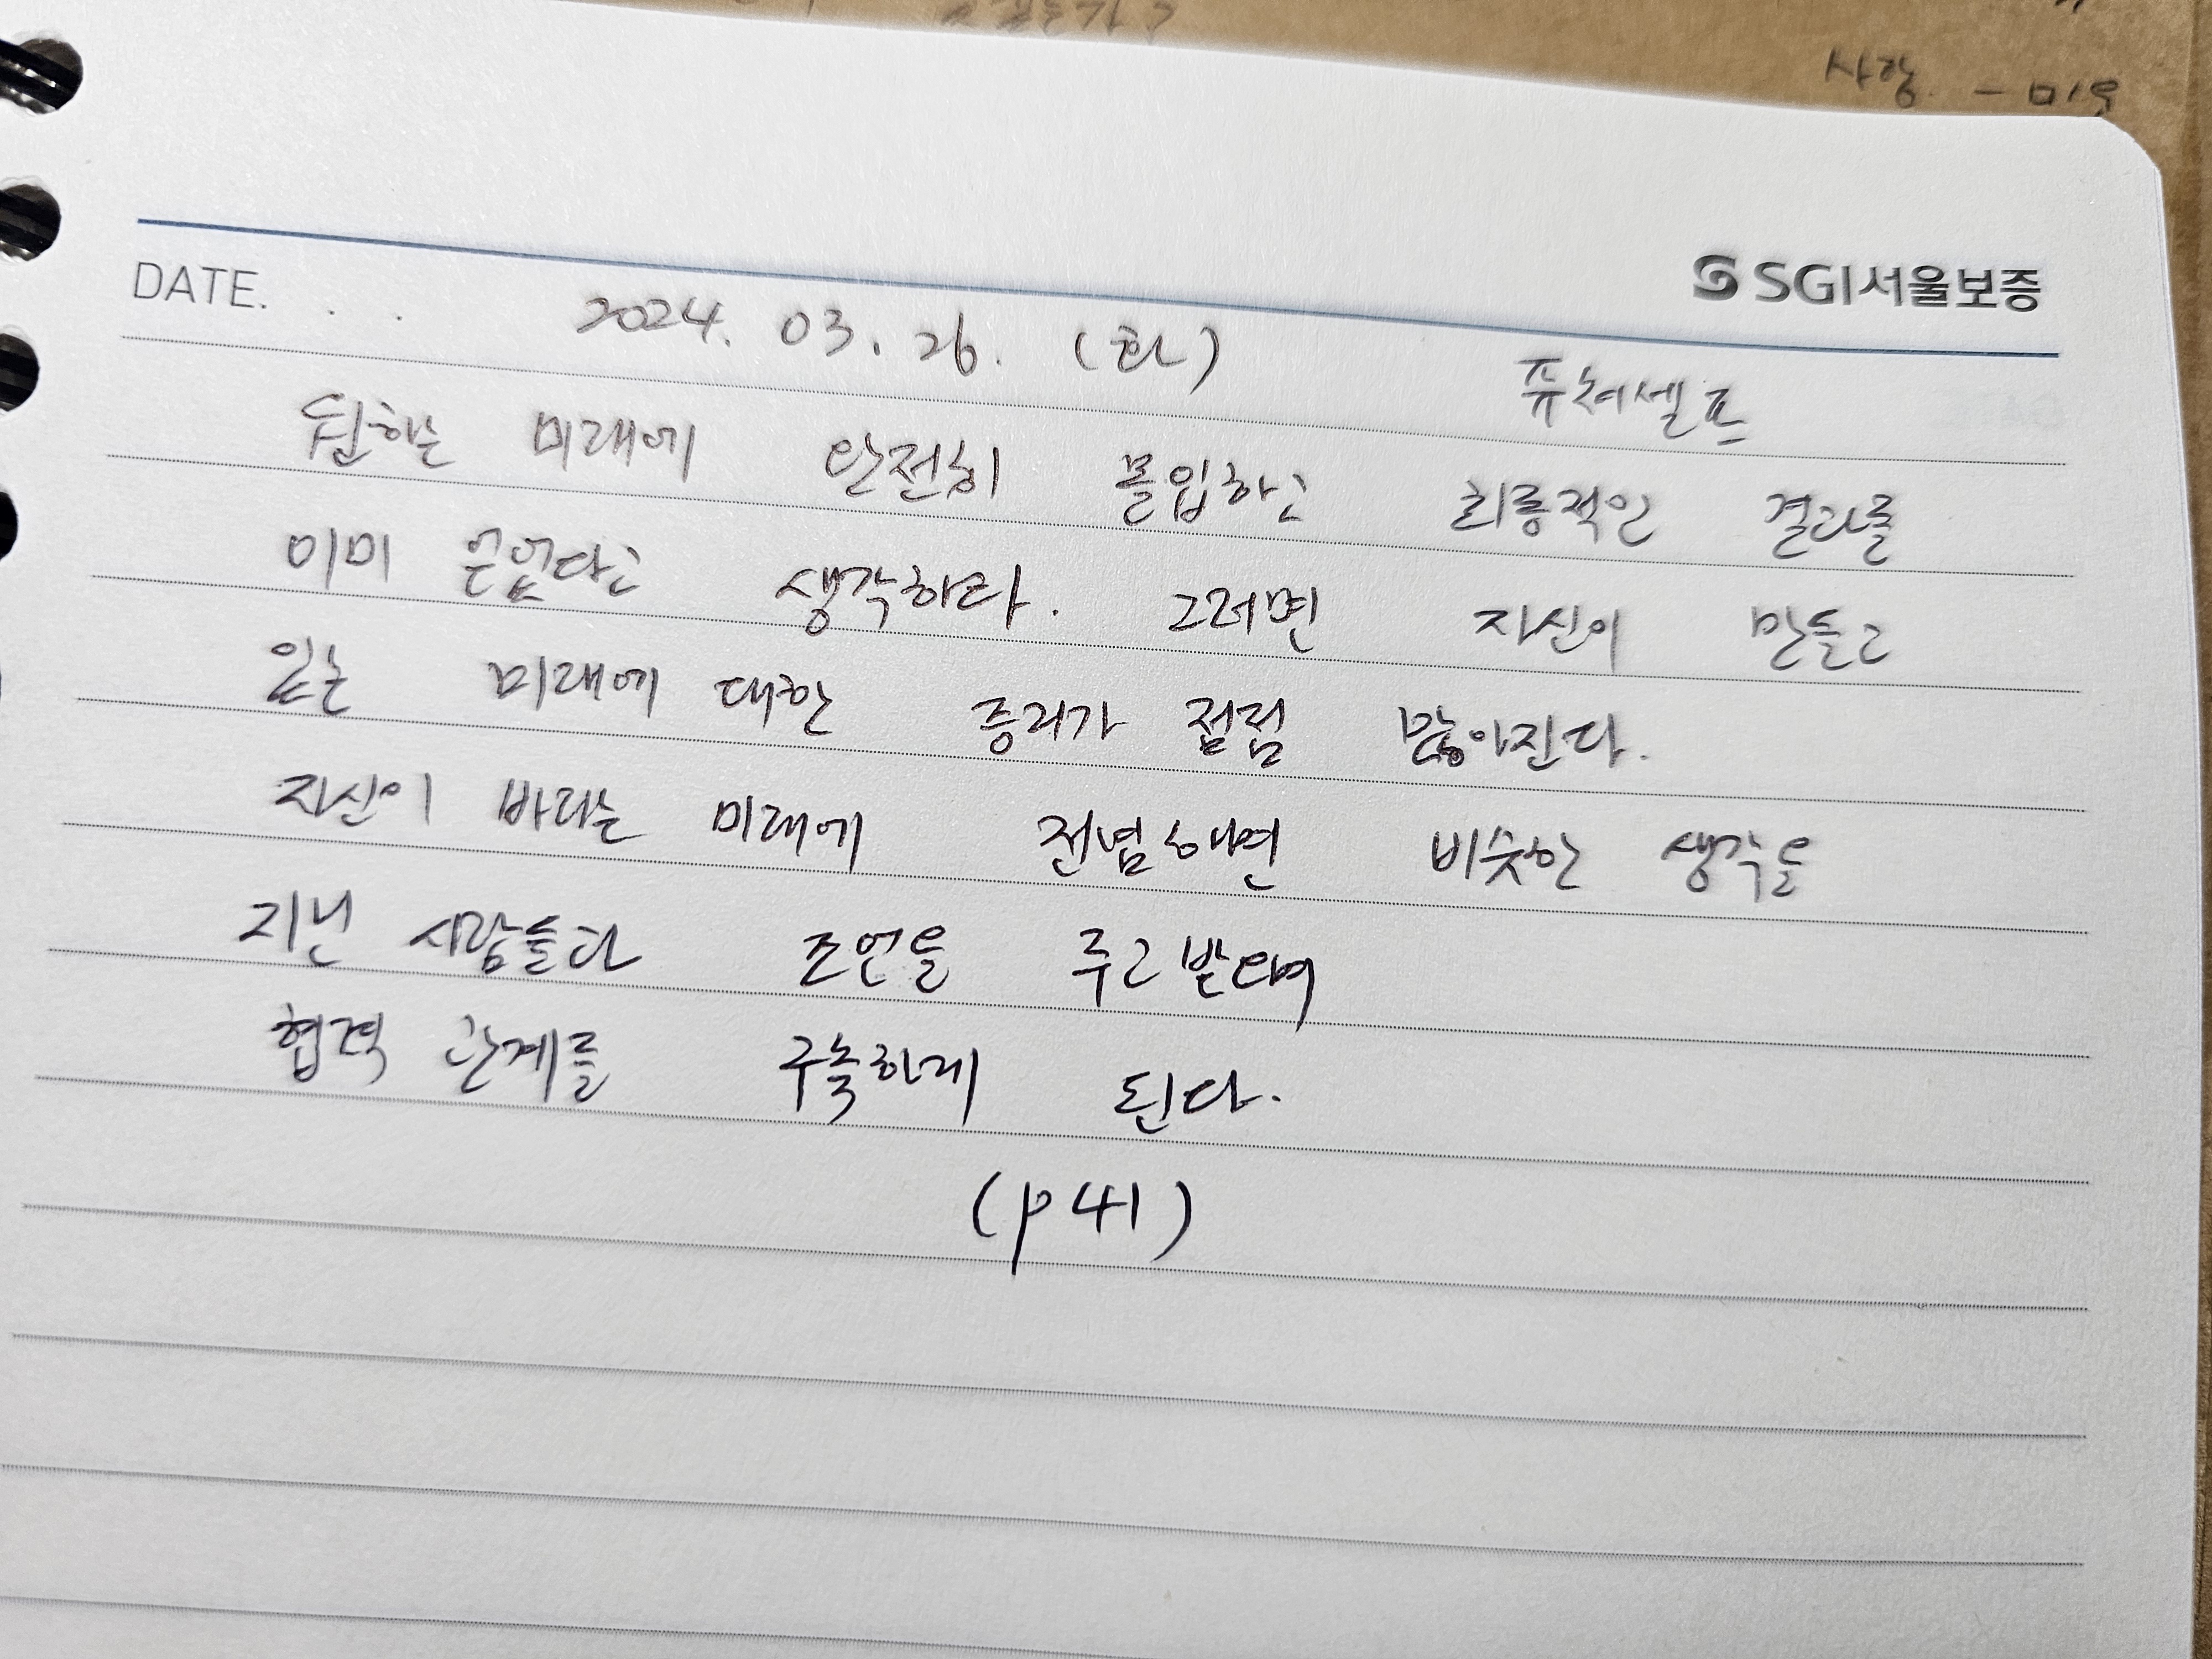 사랑 - 미움
SGI서울보증
DATE. . . 2024. 03. 26. (화)
퓨처셀프
원하는 미래에 완전히 몰입하고 최종적인 결과를
이미 얻었다고 생각하라. 그러면 자신이 만들고
있는 미래에 대한 증거가 점점 많아진다.
자신이 바라는 미래에 전념하면 비슷한 생각을
지닌 사람들과 조언을 주고 받으며
협력 관계를 구축하게 된다.
(p 41)